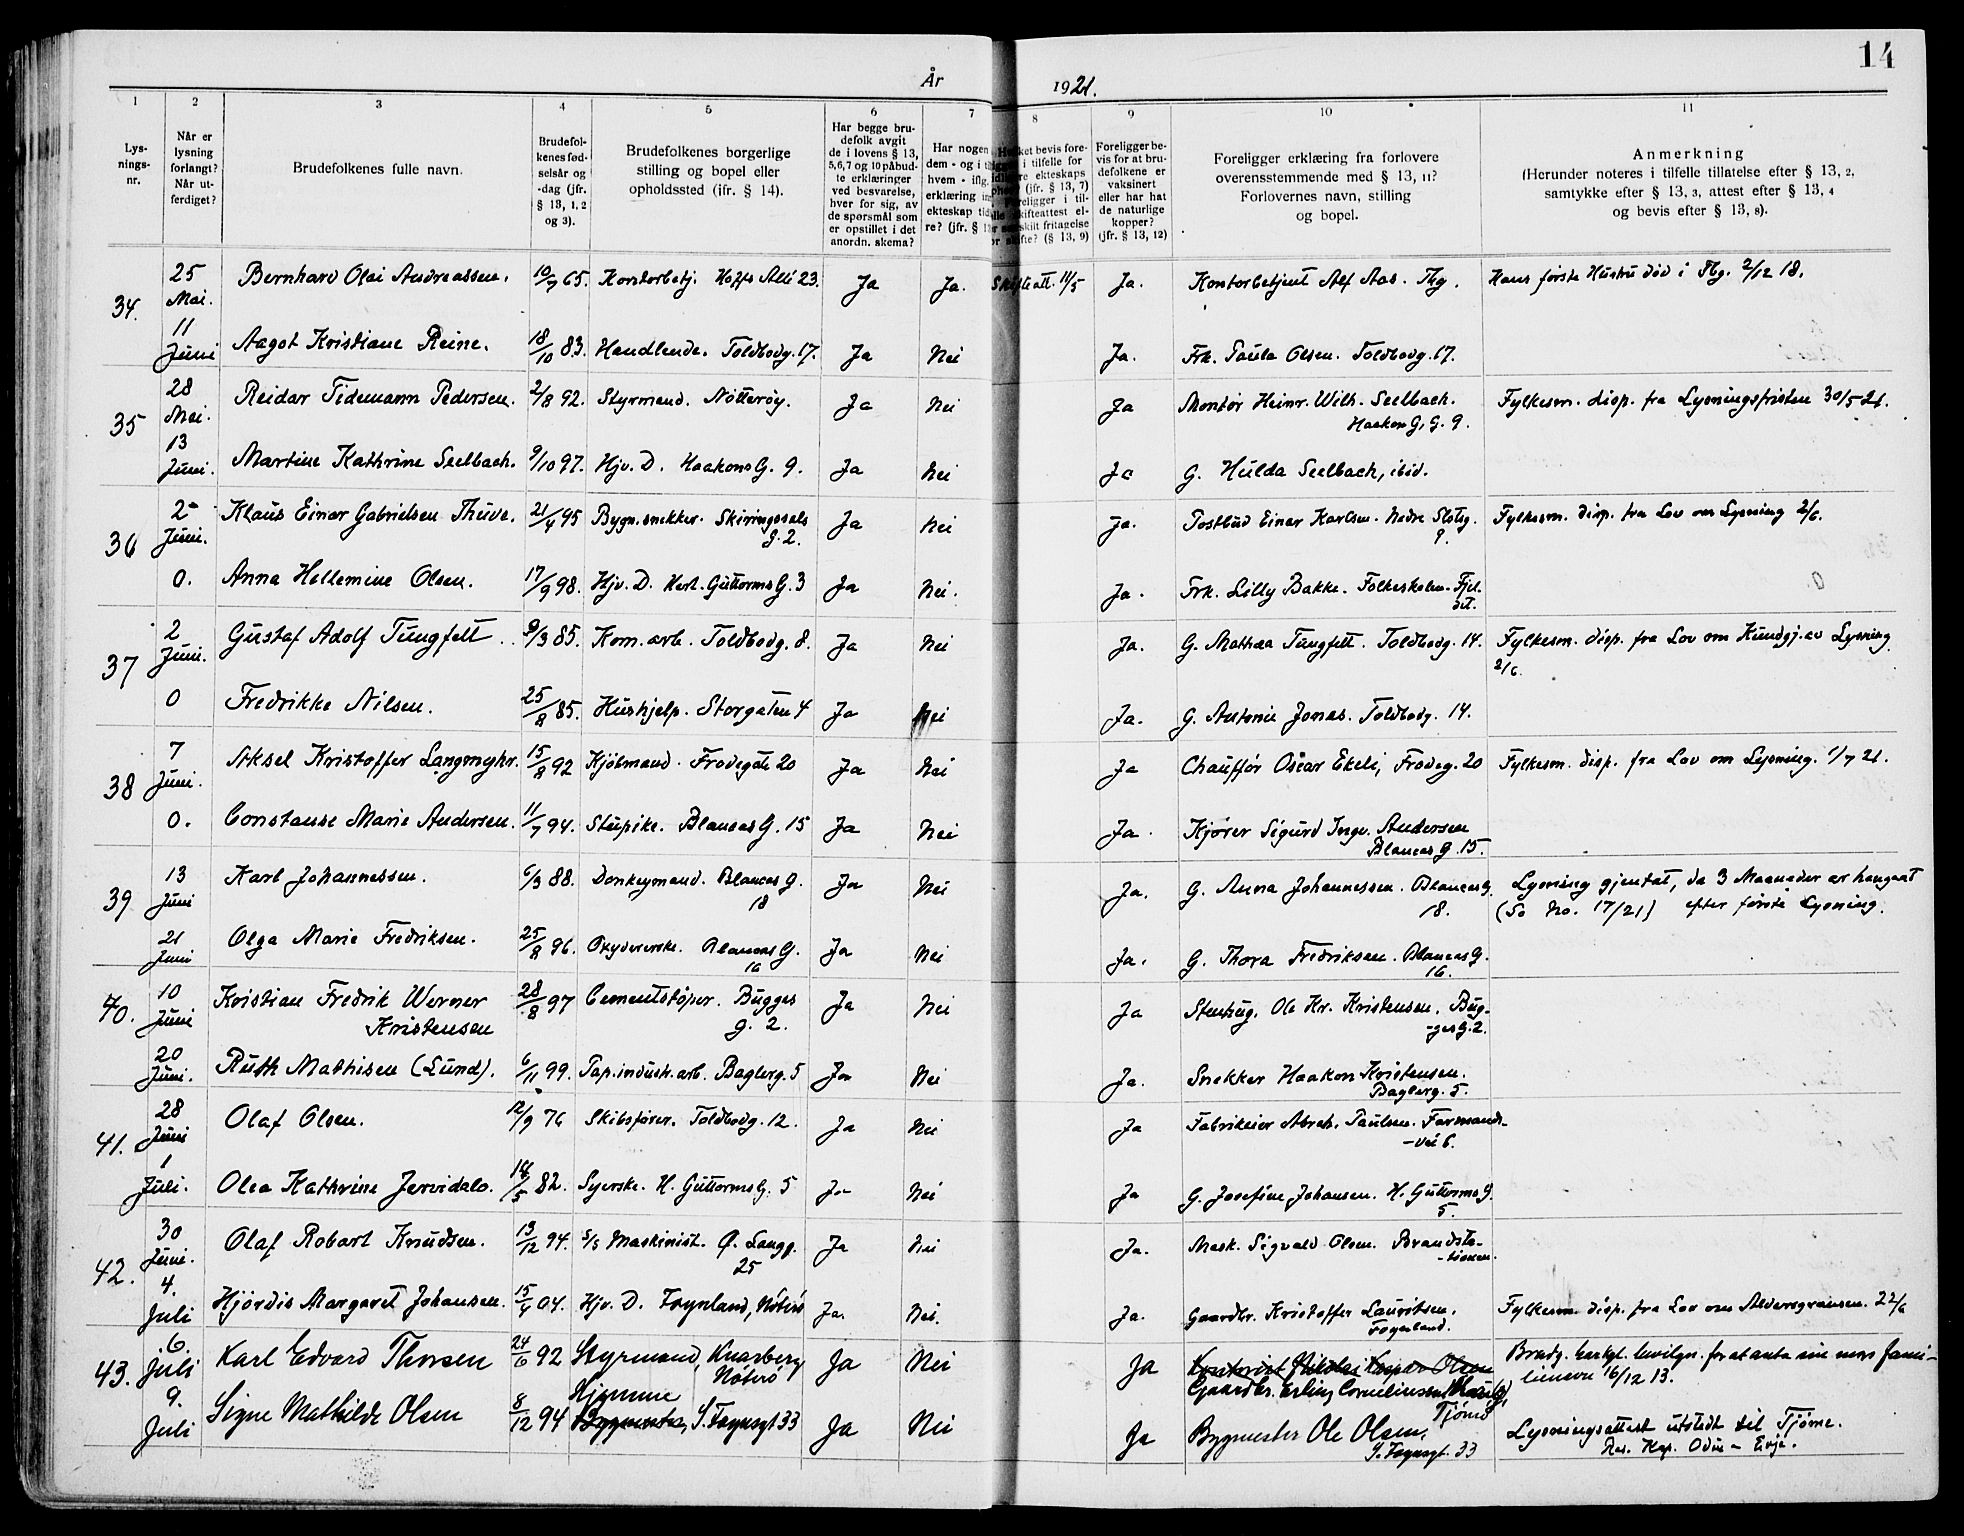 14
År 1921.
1 2 3 4 5 6 7 8 9 10 11
Lys-
nings-
nr.
Når er
lysning
forlangt?
Når ut-
ferdiget?
Brudefolkenes fulle navn.
Brudefol-
kenes fød-
selsår og
-dag (jfr.
§ 13, 1, 2
og 3).
Brudefolkenes borgerlige
stilling og bopel eller
opholdssted (ifr. § 14).
Har begge bru-
defolk avgit
de i lovens § 13,
5,6,7 og 10 påbud-
te erklæringer
ved besvarelse,
hver for sig, av
de spørsmål som
er opstillet i det
anordn. skema?
Har nogen
dem - og i
hvem - iflg.
erklæring
ekteskap tid
re? (jfr. §
ket bevis fore-
i tilfelle for
ekteskaps
(jfr. § 13, 7)
religger i til-
skifteattest el-
skilt fritagelse
(§ 13, 9)
Foreligger be-
vis for at bru-
defolkene er
vaksinert
eller har hat
de naturlige
kopper?
(jfr. § 13, 12)
Foreligger erklæring fra forlovere
overensstemmende med § 13, 11?
Forlovernes navn, stilling
og bopel.
Anmerkning
(Herunder noteres i tilfelle tillatelse efter § 13, 2,
samtykke efter § 13, 3, attest efter § 13, 4
og bevis efter § 13, 8).
34. 25 Mai. Bernhard Olai Andreassen. 10/7 65. Kontorbetj. Hoffs Allé 23. Ja Ja. Skifteatt. 11/5 Ja. Kontorbetjent Alf Aas. Tbg. Hans første Hustru død i Tbg. 2/12 18.
11 Juni Aagot Kristiane Reine. 18/10 83. Handlende. Toldbodg. 17. Ja Nei Ja. Frk. Paula Olsen. Toldbodg. 17.
35 28 Mai. Reidar Tidemann Pedersen. 2/8 92. Styrmand. Nøtterøy. Ja Nei Ja Montør Heinr. Wilh. Seelbach. Fylkesm. disp. fra Lysningsfristen 30/5 21.
Haakon G. G. 9.
13 Juni. Martine Kathrine Seelbach. 9/10 97. Hjv. D. Haakons G. 9. Ja Nei Ja G. Hulda Seelbach, ibid.
36 2 Juni. Klaus Einar Gabrielsen Thuve. 21/4 95 Bygn.snekker. Skiringssals Ja Nei Ja. Postbud Einar Karlsen. Nedre Slotsg. Fylkesm. disp. fra Lov om Lysning 2/6.
g. 2. 9.
0. Anna Hellemine Olsen. 17/9 98. Hjv. D. Harl. Guttorms G. 3 Ja Nei. Ja. Frk. Lilly Bakke. Folkeskolen.
37 2 Juni. Gustaf Adolf Tungfelt 9/3 85. Kom. arb. Toldbodg. 8. Ja Nei Ja. G. Mathea Tungfelt. Toldbodg. 14. Fylkesm. disp. fra Lov om Kundgj. av Lysning
2/6.
0 Fredrikke Nilsen. 25/8 85. Hushjelp. Storgaten 4 Ja Nei Ja. G. Antonie Jonas. Toldbodg. 14.
38 7 Juni. Aksel Kristoffer Langmyhr. 15/8 92 Kjøbmand. Frodegate 20 Ja Nei Ja Chauffør Oscar Ekeli, Frodeg. 20 Fylkesm. disp. fra Lov om Lysning. 1/7 21.
0. Constanse Marie Andersen. 11/7 94. Stuepike. Blancas G. 15 Ja Nei Ja. Kjører Sigurd Ingv. Andersen
Blancas g. 15.
39 13 Juni Karl Johannessen. 6/3 88. Donkeymand. Blancas g. Ja Nei Ja. G. Anna Johannessen. Blancas G. Lysning gjentat, da 3 Maaneder er hengaat
18 18. (Se No. 17/21) efter første Lysning.
21 Juni Olga Marie Fredriksen. 25/8 96. Blancas G. Ja Nei Ja. G. Thora Fredriksen. Blancas G.
16 16.
40. 10 Juni Kristian Fredrik Werner 28/8 97 Cementstøper. Bugges Ja Nei Ja Stenhug. Ole Kr. Kristensen. Bug-
Kristensen g. 2. -ges g. 2.
20 Juni. Ruth Mathisen (Lund). 6/11 99. Pap.industr.arb. Baglerg. 5 Ja Nei Ja. Snekker Haakon Kristensen.
Baglerg. 5.
41. 28 Juni Olaf Olsen. 12/9 76 Skibsfører. Toldbodg. 12. Ja Nei Ja Fabrikeier Abrah. Paulsen. Farmands-
-vei 6.
1 Juli. Olea Kathrine Jervidalo. 18/5 82. Syerske. H. Guttorms G. 5 Ja Nei Ja G. Josefine Johansen. H. Guttorms G.
5.
42. 30 Juni. Olaf Robart Knudsen. 13/12 94. S/S Maskinist. Ø. Langg. Ja Nei Ja. Mask. Sigvald Olsen. Brandsta-
25 -tionen.
4. Juli Hjørdis Margaret Johansen. 15/4 04. Hjv. D. Føynland, Nøterø Ja. Nei. Ja. Gaardbr. Kristoffer Lauritsen. Fylkesm. disp. fra Lov om Aldersgrænsen. 22/6
Føynland.
43. 6. Juli Karl Edvard Thorsen 24/6 92 Styrmand, Knarberg Ja Nei Ja Kontorist Nikolai Kasper Olsen
Nøterø Gaardbr. Erling Corneliussen
Tjømø
9. Juli Signe Mathilde Olsen 8/12 94 Hjemme S. Føynsgt 33 Ja Nei Ja Bygmester Ole Olsen, Lysningsattest utstedt til Tjøme.
S. Føynsgt. 33